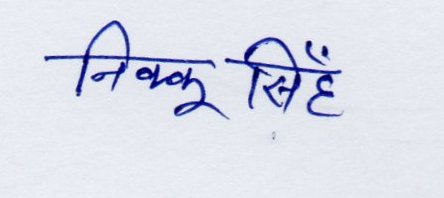 निक्कू सिहँ